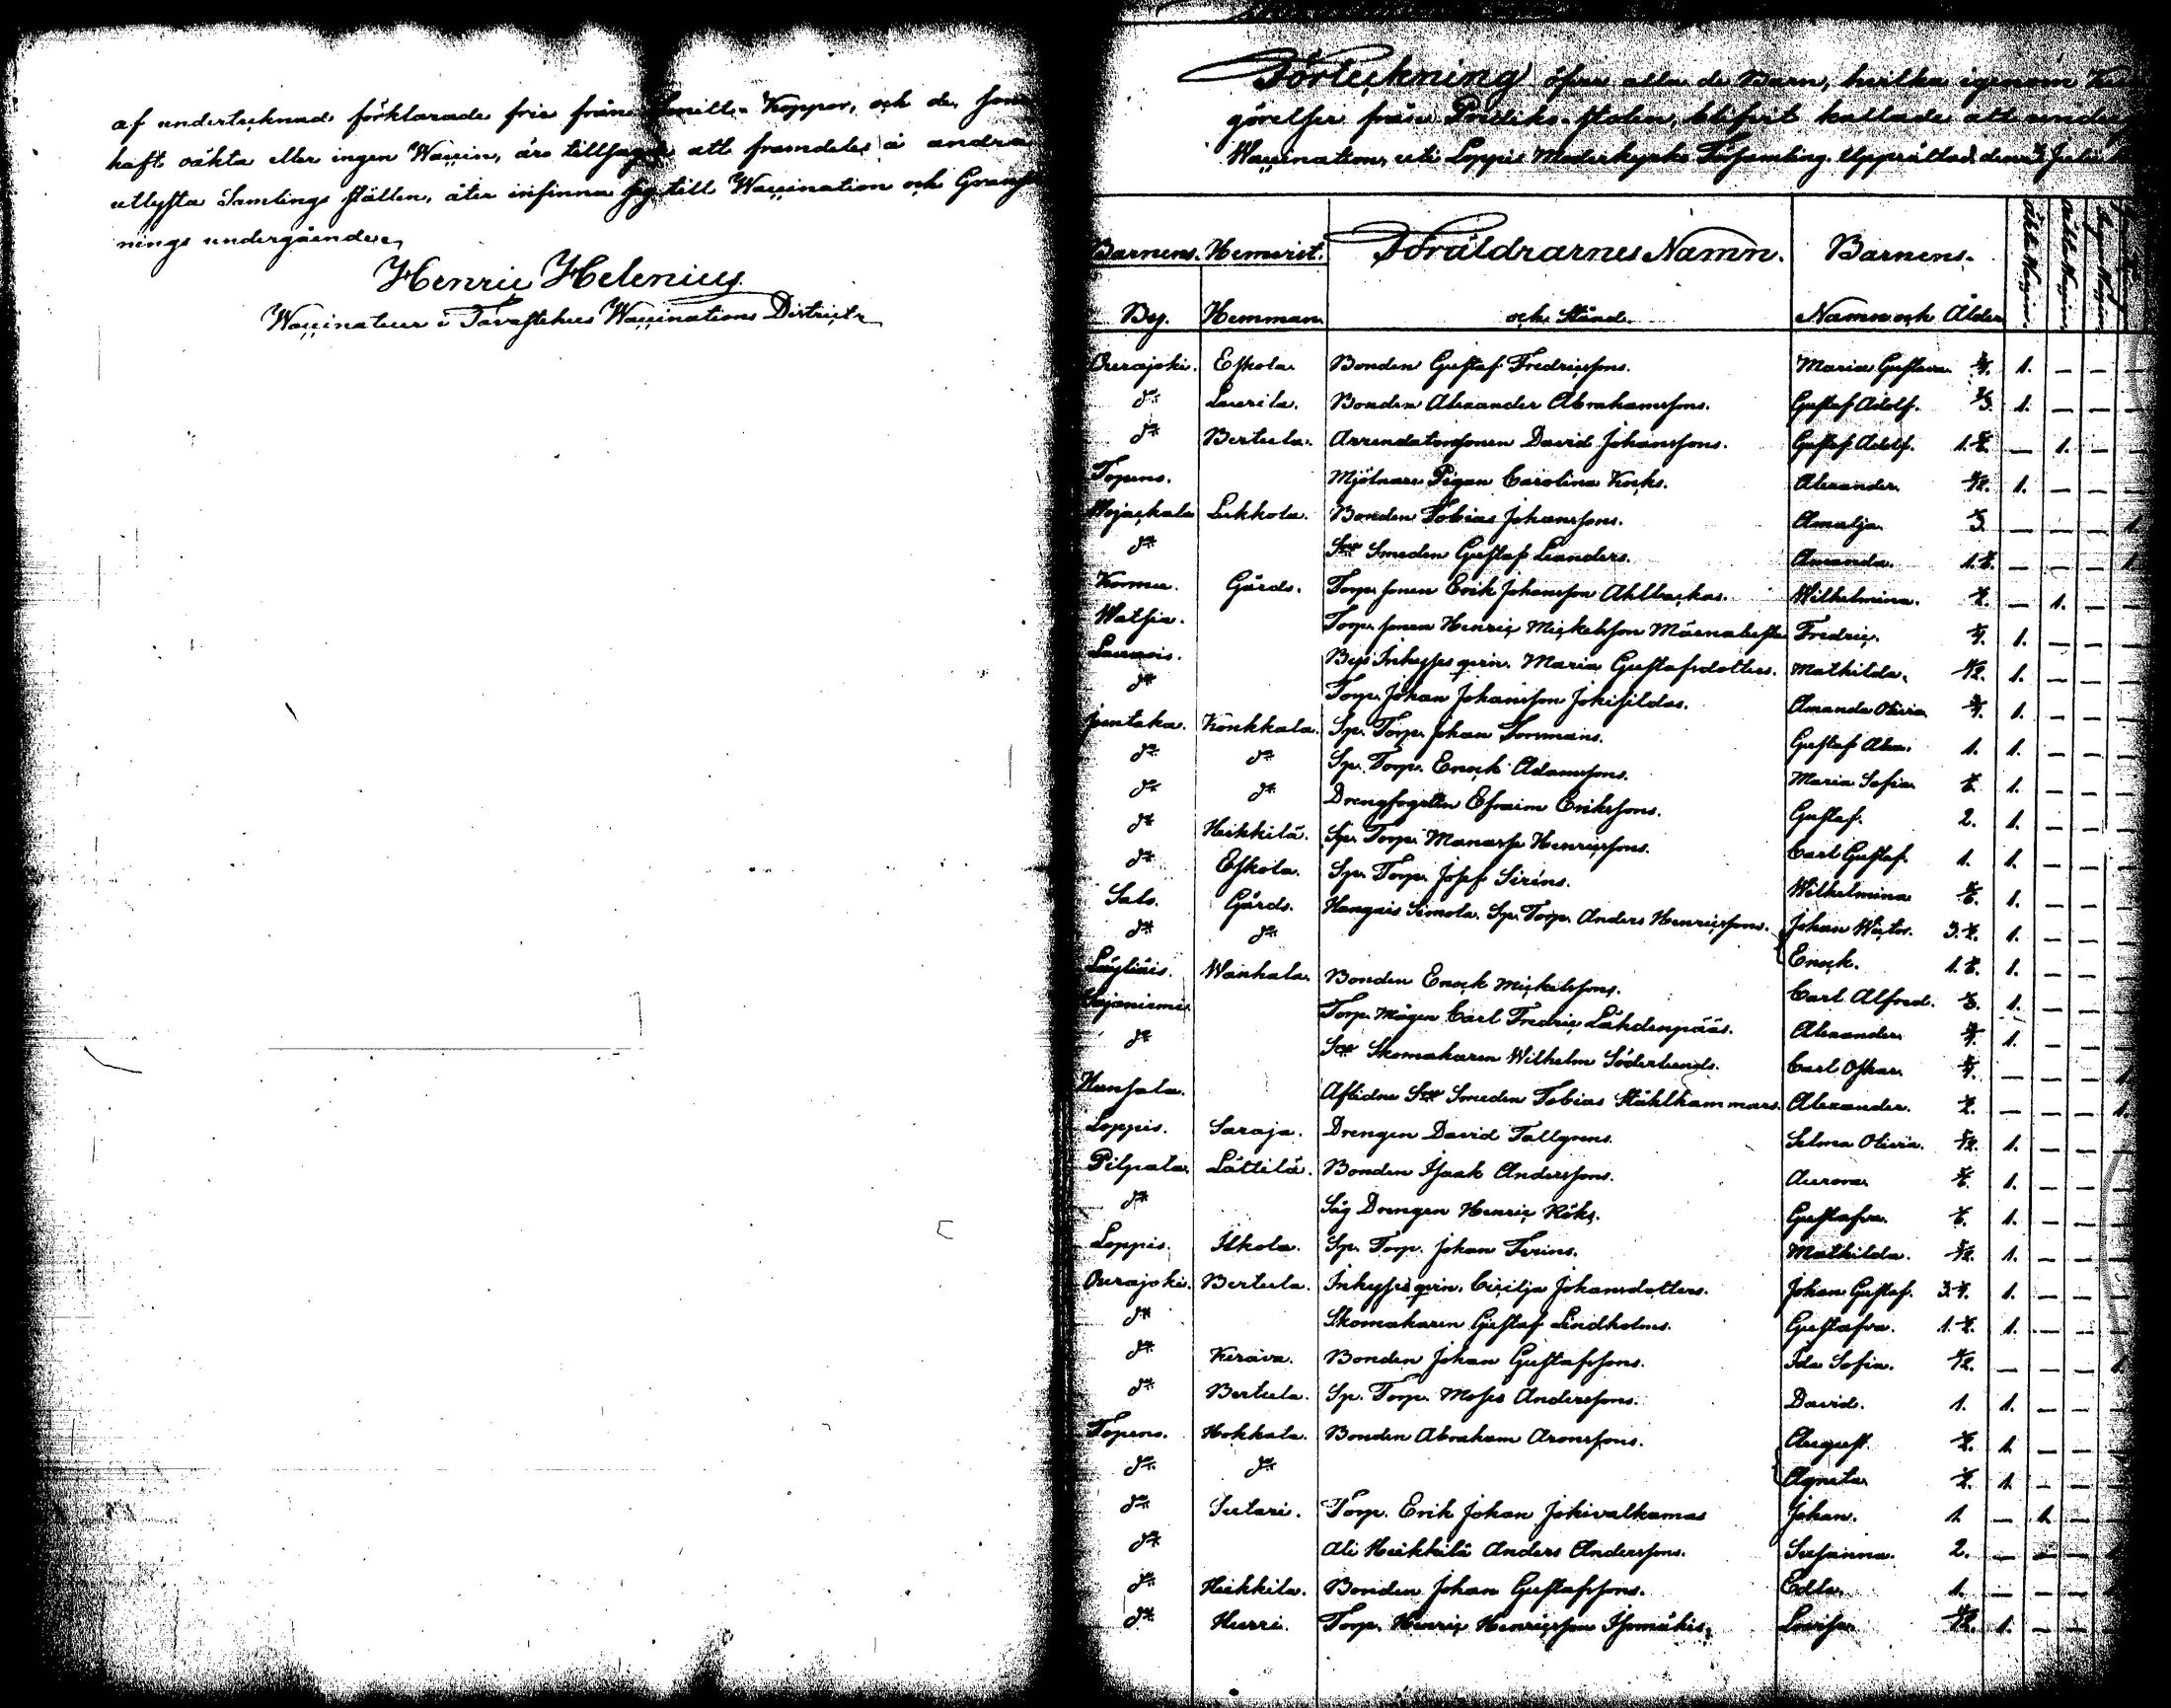 af undertecknade förklarade frie från Smitt-Koppor, och de, som
haft oäkta eller ingen Waccin, äro tillsagde att framdeles å andra
utlysta Samlings ställen, åter infinna sig till Waccination och Gransk
nings undergående.
Henric Helenius.
Waccinateur i Tavastehus Waccinations District
Förteckning öfver alla de Barn, hvilka igenom Kun
görelser från Prediko-stolen, blifvit kallade att underg
Waccination, uti Loppis Moderkyrko Församling. Upprättad den Julii
Barnens Hemvist. Föräldrarnes Namn. Barnens.
By. Hemman. och Stånd. Namn och Ålder
Ourajoki. Eskola. Bonden Gustaf Fredricssons. Maria Gustava 1. — —
do Laurila. Bonden Alexander Abrahamssons. Gustaf Adolf. 1. — — —
do Bertula. Arrendatorssonen David Johanssons. Gustaf Adolf. — 1. — —
Topeno. Mjölnare Pigan Carolina Kocks. Alexander. 1. — — —
Wojackala Lukkola. Bonden Tobias Johanssons. Amalja. — — — 1
do Smeden Gustaf Leanders. Amanda. — — — 1
Kormu. Gårds. Torp. sonen Erik Johansson Ahlbackas. Wilhelmina. — 1. — —
Watsia. Torp. sonen Henric Mickelsson Fredric. 1. — — —
Launois. Bys Inhyses qvin. Maria Gustafsdotters. Mathilda. 1. — — —
do Torp. Johan Johansson Jokisildas. Amanda Olivia 1. — — —
Jentaka. Könkkala. Sp. Torp. Johan Tommains. Gustaf Alex. 1. 1. — — —
do do Sp. Torp. Enock Adamssons. Maria Sofia 1. — — —
do do Drengfogden Efraim Erikssons. Gustaf. 2. 1. — — —
do Heikkilä. Sp. Torp. Manasse Henricssons. Carl Gustaf 1. 1. — — —
do Eskola. Sp. Torp. Josef Siréns. Wilhelmina 1. — — —
Salo. Gårds. Hangais Simola. Sp. Torp. Anders Henricssons. Johan Wictor. 1. — — —
do do Enock. 1. — — —
Läyliäis. Wanhala. Bonden Enock Mickelssons. Carl Alfred. 1. — — —
Sajaniemi. Torp. Mågen Carl Fredric Lähdenpääs. Alexander 1. — — —
do Skomakaren Wilhelm Söderlunds. Carl Oskar — — — 1
Hunsala. Aflidne Smeden Tobias Stählhammars. Alexander. — — — 1.
Loppis. Saraja. Drengen David Tallgrens. Selma Olivia. 1. — — —
Pilpala. Lättilä. Bonden Isaak Anderssons. Aurora 1. — — —
do Såg Drengen Henric Röks. Gustafva. 1. — — —
Loppis. Ilkola. Sp. Torp. Johan Mathilda. 1. — — —
Ourajoki. Bertula. Inhyses qvin. Cicilja Johansdotters. Johan Gustaf. 1. — — —
do Skomakaren Gustaf Lindholms. Gustafva. 1. — — —
do Kerava. Bonden Johan Gustafssons. Ida Sofia. — — — 1.
do Bertula. Sp. Torp. Moses Anderssons. David. 1. 1. — — —
Topeno. Hokkala. Bonden Abraham Aronssons. August 1. — — —
do do Agneta 1. — — —
do Sutari. Torp. Erik Johan Jokivalkamas Johan. 1. — 1. — —
do Ali Heikkilä Anders Anderssons. Susanna. 2. — — — 1
do Heikkila. Bonden Johan Gustafssons. Edla. 1. — — —
do Hurri. Torp. Henric Henricsson Isomäkis. Lovisa 1. — — —